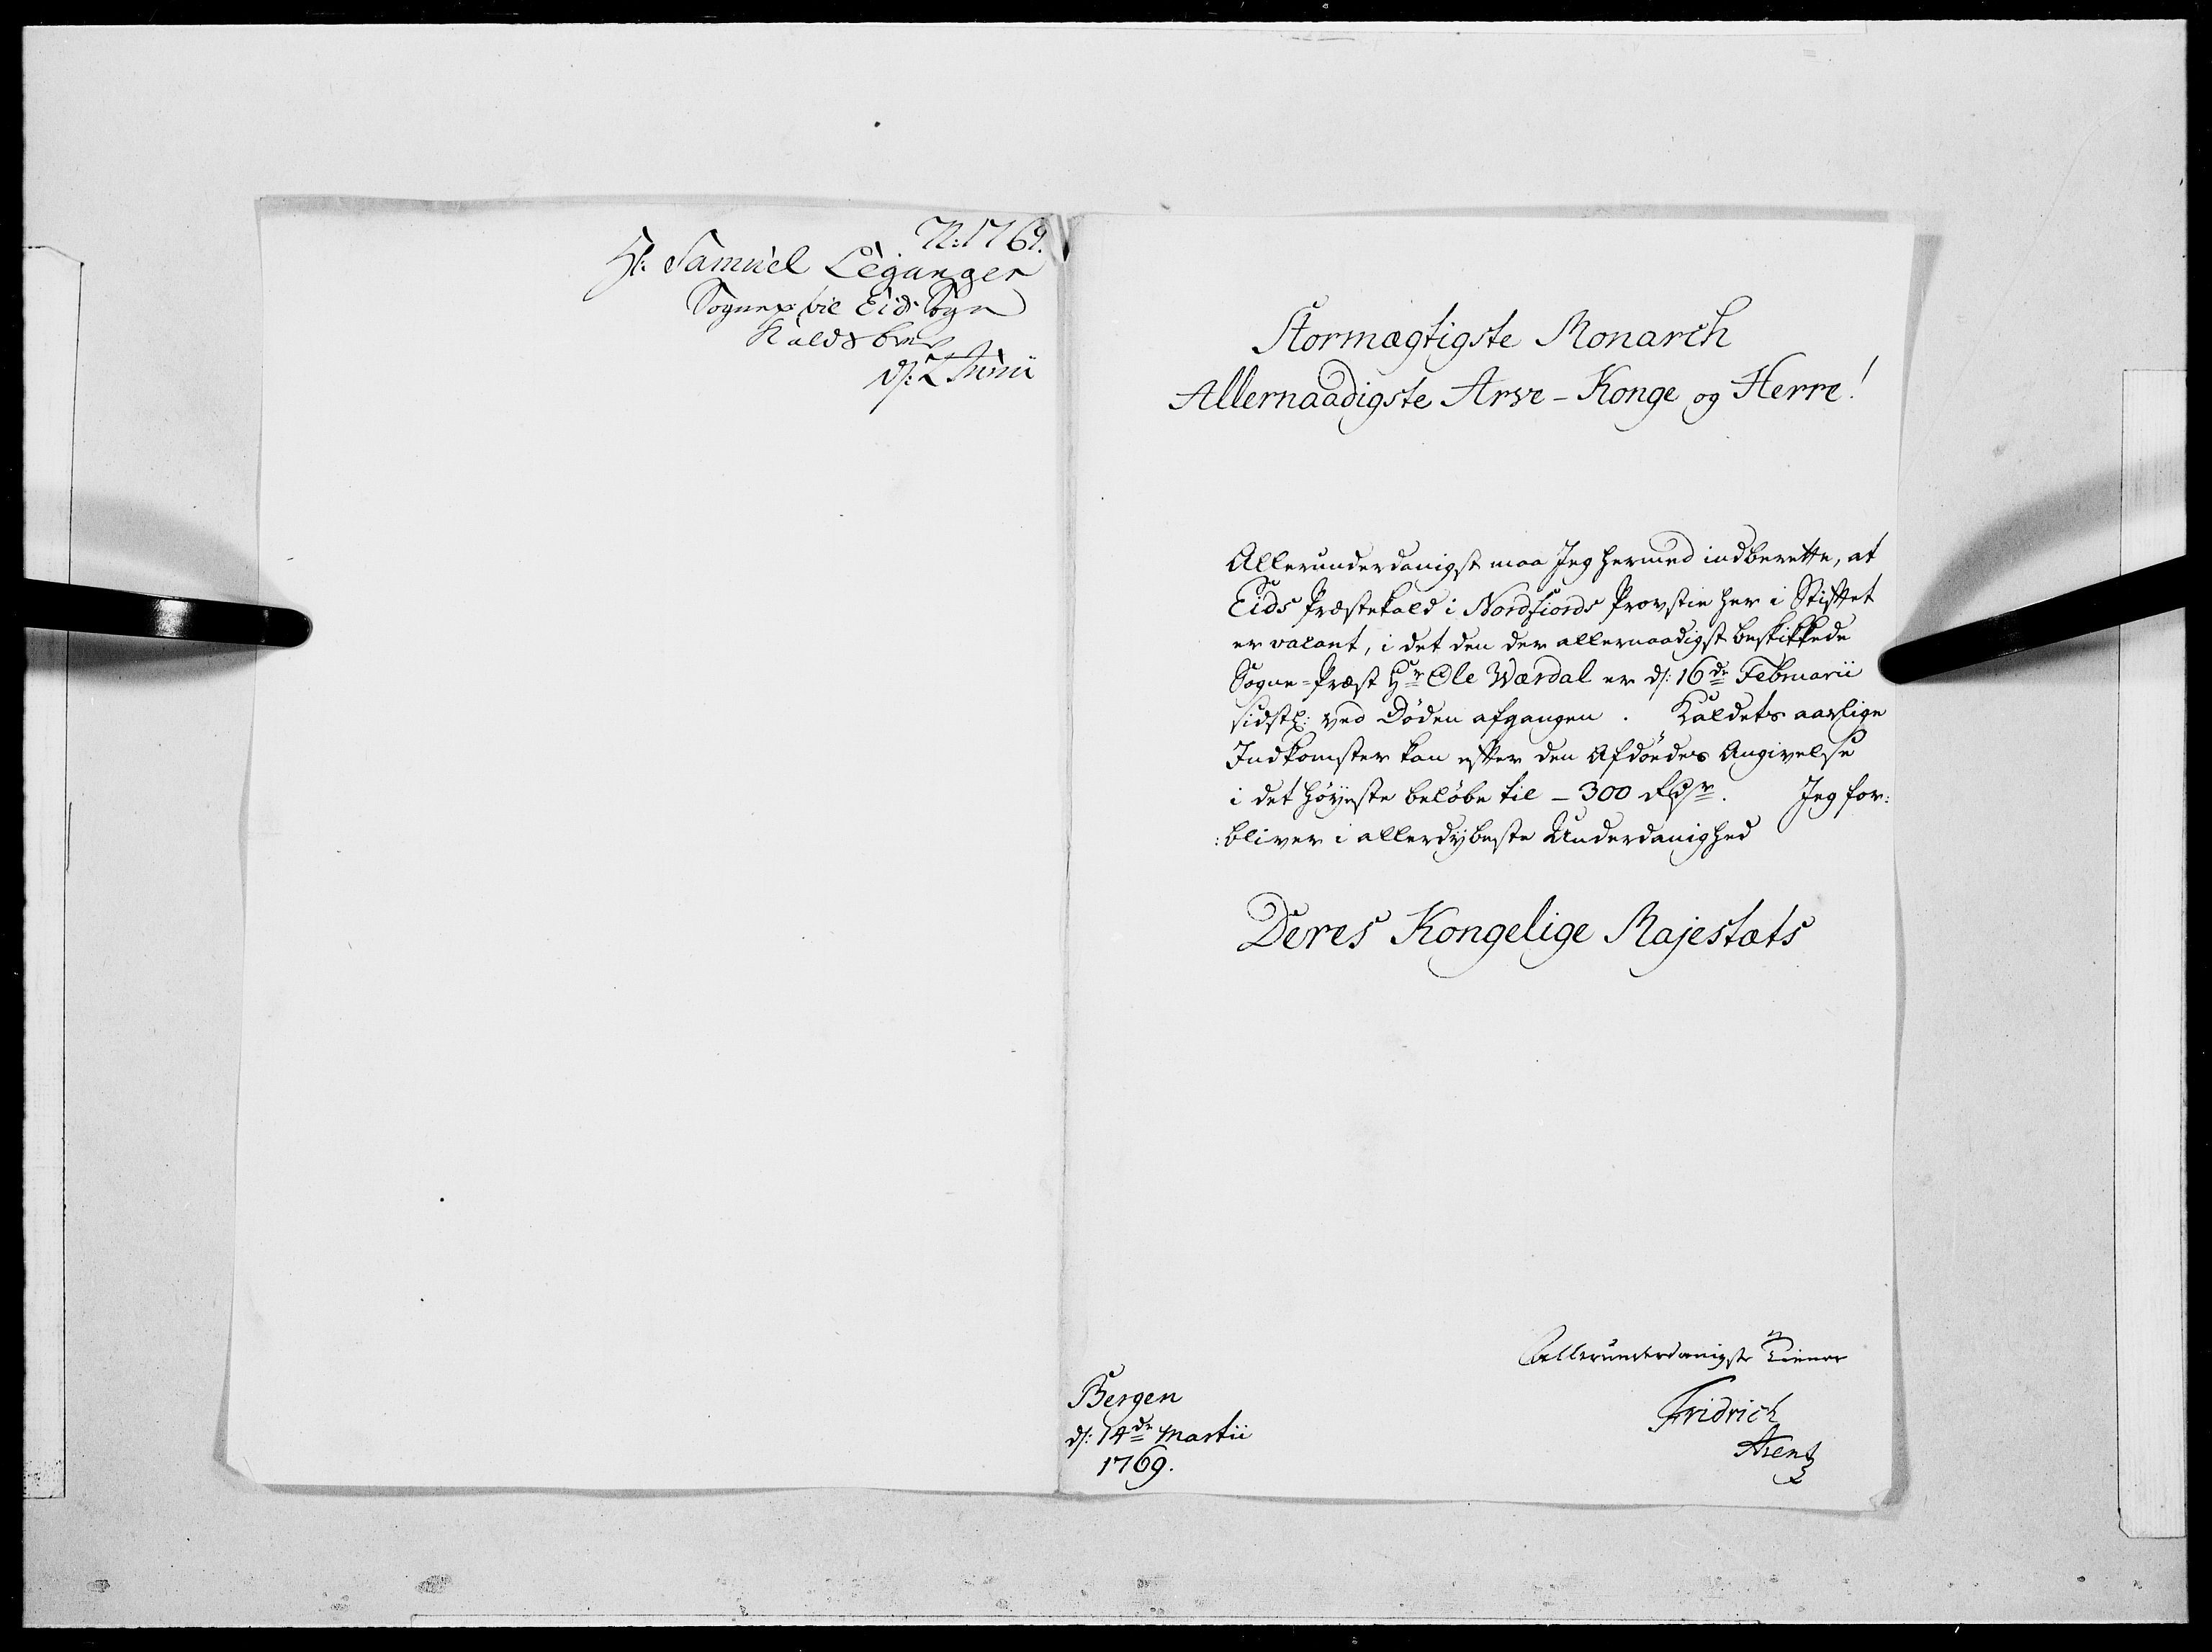 N: 1769.
Hr: Samuel Leganger
Sognep: til Eids Sogn
Kaldsbrev
d: 2 Junii
Stormægtigste Monarch
Allernaadigste Arve-Konge og Herre!
Allerunderdanigst maa Jeg hermed indberette, at
Eids Præstekald i Nordfiords Provstie her i Stiftet
er vacant, i det den der allernaadigst beskikkede
Sogne-Præst Hr Ole Wærdal er d: 16de Februarii
sidstl: ved Døden afgangen. Kaldets aarlige
Indkomster kan efter den Afdødes Angivelse
i det høyeste beløbe til - 300 Rdr. Jeg for:
:bliver i allerdybeste Underdanighed
Deres Kongelige Majestæts
Allerunderdanigste Tiener
Fridrich
Arentz
Bergen
d: 14de Martii
1769.